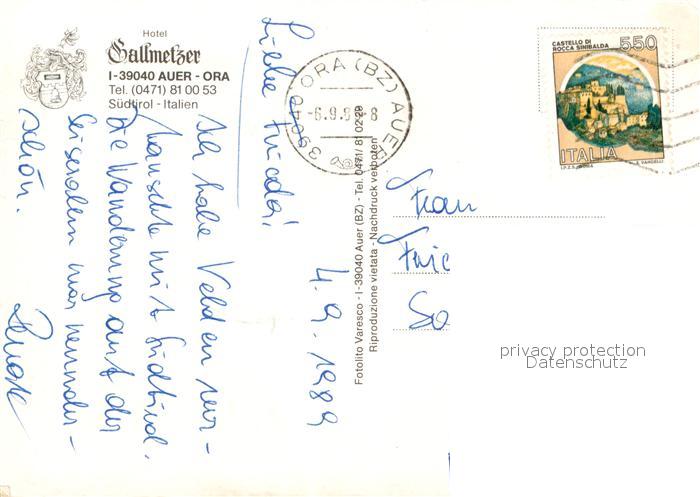 Hotel
Gallmetzer
I-39040 AUER - ORA
Tel. (0471) 81 00 53
Südtirol - Italien
4.9.1989
Liebe Frieda!
Ich habe Velden ver-
tauscht mit Südtirol.
Die Wanderung auf der
Seiseralm war wunder-
schön.
Renate
39040 ORA (BZ) AUER
-6.9.8 -8
Fotolito Varesco - I-39040 Auer (BZ) - Tel. 0471/ 81 02 29
Riproduzione vietata - Nachdruck verboten
CASTELLO DI
ROCCA SINIBALDA
550
ITALIA
I.P.Z.S. ROMA E. VANGELLI
Frau
Frie
So
privacy protection
Datenschutz